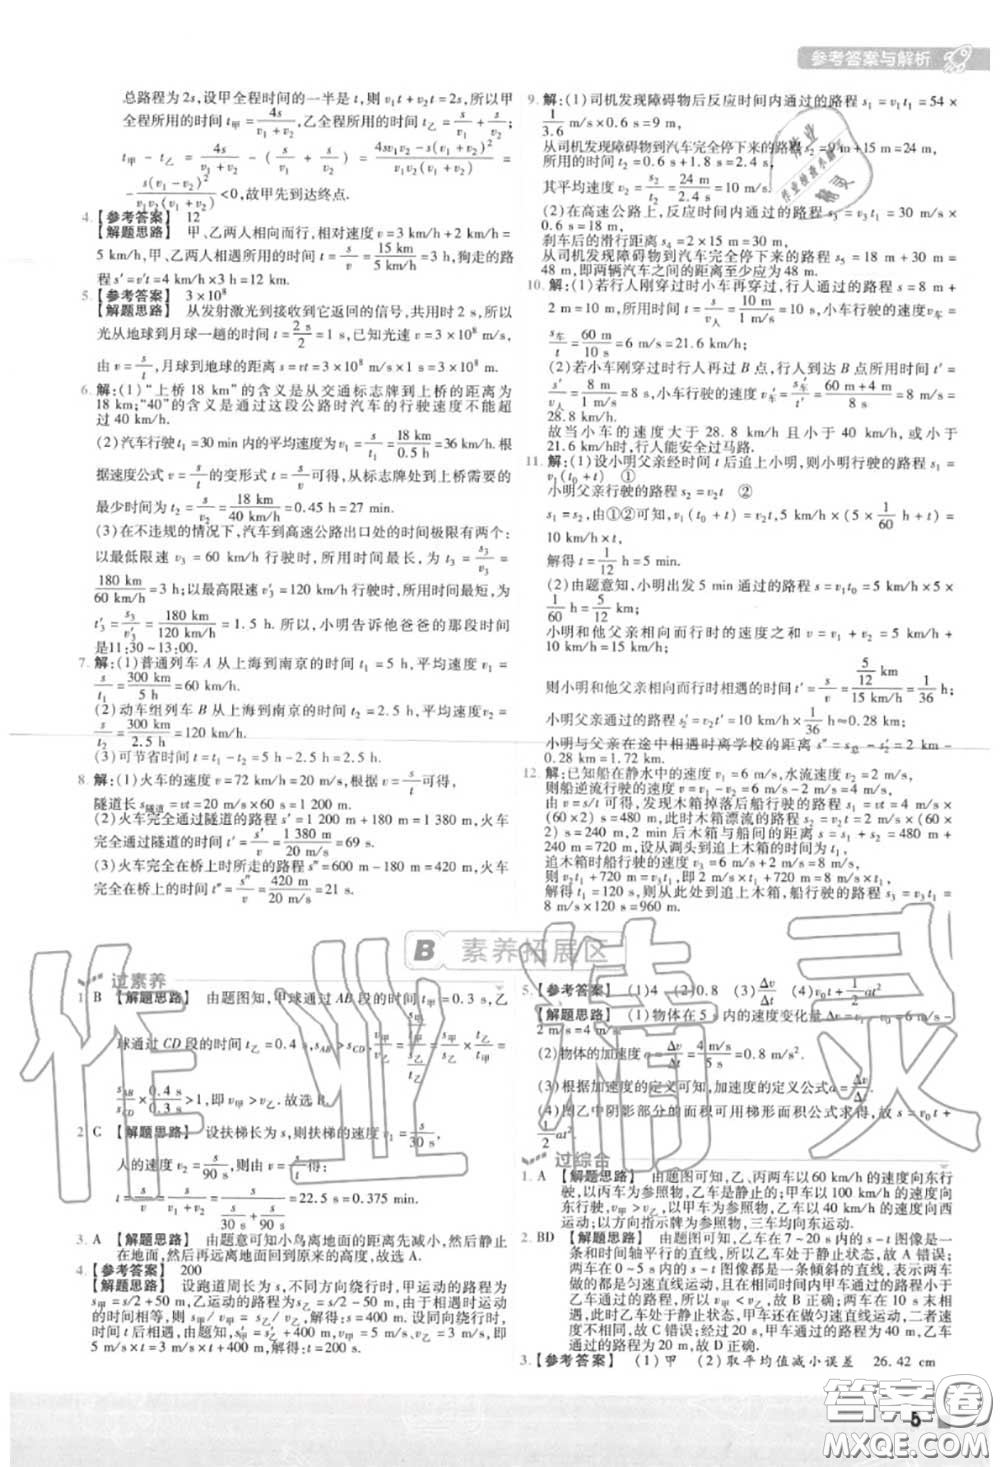 参考答案与解析
总路程为2s,设甲全程时间的一半是t,则v₁t+v₂t=2s,所以甲
全程所用的时间t甲=4s/(v₁+v₂),乙全程所用的时间t乙=s/v₁+s/v₂.
t甲-t乙=4s/(v₁+v₂)-(s/v₁+s/v₂)=(4sv₁v₂-s(v₁+v₂)²)/(v₁v₂(v₁+v₂))=
-s(v₁-v₂)²/(v₁v₂(v₁+v₂))<0,故甲先到达终点.
4.【参考答案】 12
【解题思路】 甲、乙两人相向而行,则v=v甲+v乙=3 km/h+2 km/h=
5 km/h,甲、乙两人相遇所用的时间t=s/v=3 h,狗走的路
程s′=v′t=4 km/h×3 h=12 km.
5.【参考答案】 3×10⁸
【解题思路】 从发射激光到接收到它返回的信号,共用时2 s,所以
光从地球到月球一趟的时间t=2 s/2=1 s,已知光速v=3×10⁸ m/s,
由v=s/t,月球到地球的距离s=vt=3×10⁸ m/s×1 s=3×10⁸ m.
6.解:(1)“上桥18 km”的含义是从交通标志牌到上桥的距离为
18 km;“40”的含义是通过这段公路时汽车的行驶速度不能超
过40 km/h.
(2)汽车行驶t₁=30 min内的平均速度v₁=s/t₁=18 km/0.5 h=36 km/h.根
据速度公式v=s/t的变形式t=s/v可得,从标志牌处到上桥需要的
最少时间为t₂=s/v₂=18 km/40 km/h=0.45 h=27 min.
(3)在不违规的情况下,汽车到高速公路出口处的时间极限有两个:
以最低限速v₃=60 km/h行驶时,所用时间最长,为t₃=s₃/v₃=
180 km/60 km/h=3 h;以最高限速v′₃=120 km/h行驶时,所用时间最短,为
t′₃=s₃/v′₃=180 km/120 km/h=1.5 h.所以,小明告诉他爸爸的那段时间
是11:30~13:00.
7.解:(1)普通列车A从上海到南京的时间t₁=5 h,平均速度v₁=
s/t₁=300 km/5 h=60 km/h.
(2)动车组列车B从上海到南京的时间t₂=2.5 h,平均速度v₂=
s/t₂=300 km/2.5 h=120 km/h.
(3)可节省时间t=t₁-t₂=5 h-2.5 h=2.5 h.
8.解:(1)火车的速度v=72 km/h=20 m/s,根据v=s/t可得,
隧道长s隧道=vt=20 m/s×60 s=1 200 m.
(2)火车完全通过隧道的路程s′=1 200 m+180 m=1 380 m,火
车完全通过隧道的时间t′=s′/v=1 380 m/20 m/s=69 s.
(3)火车完全在桥上时所走的路程s″=600 m-180 m=420 m,火
车完全在桥上的时间t″=s″/v=420 m/20 m/s=21 s.
9.解:(1)司机发现障碍物后反应时间内通过的路程s₁=v₁t₁=54×
1/3.6 m/s×0.6 s=9 m,
从司机发现障碍物到汽车完全停下来的路程s₂=9 m+15 m=24 m,
所用的时间t₂=0.6 s+1.8 s=2.4 s,
其平均速度v₂=s₂/t₂=24 m/2.4 s=10 m/s.
(2)在高速公路上,反应时间内通过的路程s₃=v₃t₁=30 m/s×
0.6 s=18 m,
刹车后的滑行距离s₄=2×15 m=30 m,
从司机发现障碍物到汽车完全停下来的路程s₅=18 m+30 m=
48 m,即两辆汽车之间的距离至少应为48 m.
10.解:(1)若行人刚穿过时小车再穿过,行人通过的路程s=8 m+
2 m=10 m,所用的时间t=s/v人=10 m/1 m/s=10 s,小车行驶的速度v车=
s车/t=60 m/10 s=6 m/s=21.6 km/h;
(2)若小车刚穿过时行人再过B点,行人行驶的时间t′=
s′/v人=8 m/1 m/s=8 s,小车行驶的速度v′车=s′车/t′=(60 m+4 m)/8 s=64 m/8 s=8 m/s=
28.8 km/h.
故当小车的速度大于28.8 km/h且小于40 km/h,或小于
21.6 km/h时,行人能安全过马路.
11.解:(1)设小明父亲经时间t后追上小明,则小明行驶的路程s₁=
v₁(t₀+t) ①
小明父亲行驶的路程s₂=v₂t ②
s₁=s₂,由①②可知,v₁(t₀+t)=v₂t,5 km/h×(5×1/60 h+t)=
10 km/h×t,
解得t=1/12 h=5 min.
(2)由题意知,小明出发5 min通过的路程s=v₁t₀=5 km/h×5×
1/60 h=5/12 km;
小明和他父亲相向而行时的速度之和v=v₁+v₂=5 km/h+
10 km/h=15 km/h,
则小明和他父亲相向而行时相遇的时间t′=s/v=5/12 km/15 km/h=1/36 h,
小明父亲通过的路程s₂′=v₂t′=10 km/h×1/36 h≈0.28 km.
小明与父亲在途中相遇时离学校的距离s″=s总-s₂′=2 km-
0.28 km=1.72 km.
12.解:已知船在静水中的速度v₁=6 m/s,水流速度v₂=2 m/s,
则船逆流行驶的速度v=v₁-v₂=6 m/s-2 m/s=4 m/s,
由v=s/t可得,发现木箱掉落后船行驶的路程s₁=vt=4 m/s×
(60×2) s=480 m,此时木箱漂流的路程s₂=v₂t=2 m/s×(60×
2) s=240 m,2 min后木箱与船间的距离s=s₁+s₂=480 m+
240 m=720 m,设从调头到追上木箱的时间为t₁,
追木箱时船行驶的速度v₃=v₁+v₂=6 m/s+2 m/s=8 m/s,
则v₂t₁+720 m=v₃t₁,即2 m/s×t₁+720 m=8 m/s×t₁,
解得t₁=120 s,则从此处到追上木箱,船行驶的路程s₃=v₃t₁=
8 m/s×120 s=960 m.
B 素养拓展区
过素养
1. B 【解题思路】 由题图知,甲球通过AB段的时间t甲=0.3 s,乙
球通过CD段的时间t乙=0.4 s,
>1,即v甲>v乙.故选B.
2. C 【解题思路】 设扶梯长为s,则扶梯的速度v₁=s/t₁=s/30 s,
人的速度v₂=s/t₂=s/90 s,则由题意得:
t=s/(v₁+v₂)=s/(s/30 s+s/90 s)=22.5 s=0.375 min.
3. A 【解题思路】 由题意可知小鸟离地面的距离先减小,然后停
在地面,然后再远离地面回到原来的高度,故选A.
4.【参考答案】 200
【解题思路】 设跑道周长为s,不同方向绕行时,甲运动的路程为
s甲=s/2+50 m,乙运动的路程为s乙=s/2-50 m,由于相遇时运动
的时间相等,所以s甲/v甲=s乙/v乙,解得:s=400 m.设相同方向绕
行时间为t,由题知,s甲′=s乙′+400 m,v甲t=v乙t+400 m,即
5 m/s×t=3 m/s×t+400 m,解得:t=200 s.
5.【参考答案】 (1)4 (2)0.8 (3)Δv/Δt (4)v₀t+1/2at²
【解题思路】 (1)物体在5 s内的速度变化量Δv=6 m/s
-2 m/s=4 m/s.
(2)物体的加速度a=Δv/Δt=4 m/s/5 s=0.8 m/s².
(3)根据加速度的定义可知,加速度的定义公式a=Δv/Δt.
(4)图乙中阴影部分的面积可用梯形面积公式求得,故s=v₀t+
1/2at².
过综合
1. A 【解题思路】 由题图可知,乙、丙两车以60 km/h的速度向东行
驶,以丙车为参照物,乙车是静止的;甲车以100 km/h的速度向
东行驶,且v甲>v乙,则以甲车为参照物,乙车是向西
运动;以方向指示牌为参照物,三车均向东运动.
2. BD 【解题思路】 由题图可知,乙车在7~20 s内的s-t图像是一
条和时间轴平行的直线,所以乙车处于静止状态,故A错误;
两车在0~5 s内的s-t图像是一条倾斜的直线,表示两车做
的是匀速直线运动,且在相同时间内甲车通过的路程小于
乙车,所以v甲<v乙,故B正确;两车在10 s末相遇后,乙车
处于静止状态,甲车还在做匀速直线运动,二者速
度不相同,故C错误;经过20 s,甲车通过的路程为40 m,乙车
通过的路程为20 m,故D正确.
3.【参考答案】 (1)甲 (2)取平均值减小误差 26.42 cm
5
作业精灵
答案圈
MXQE.COM